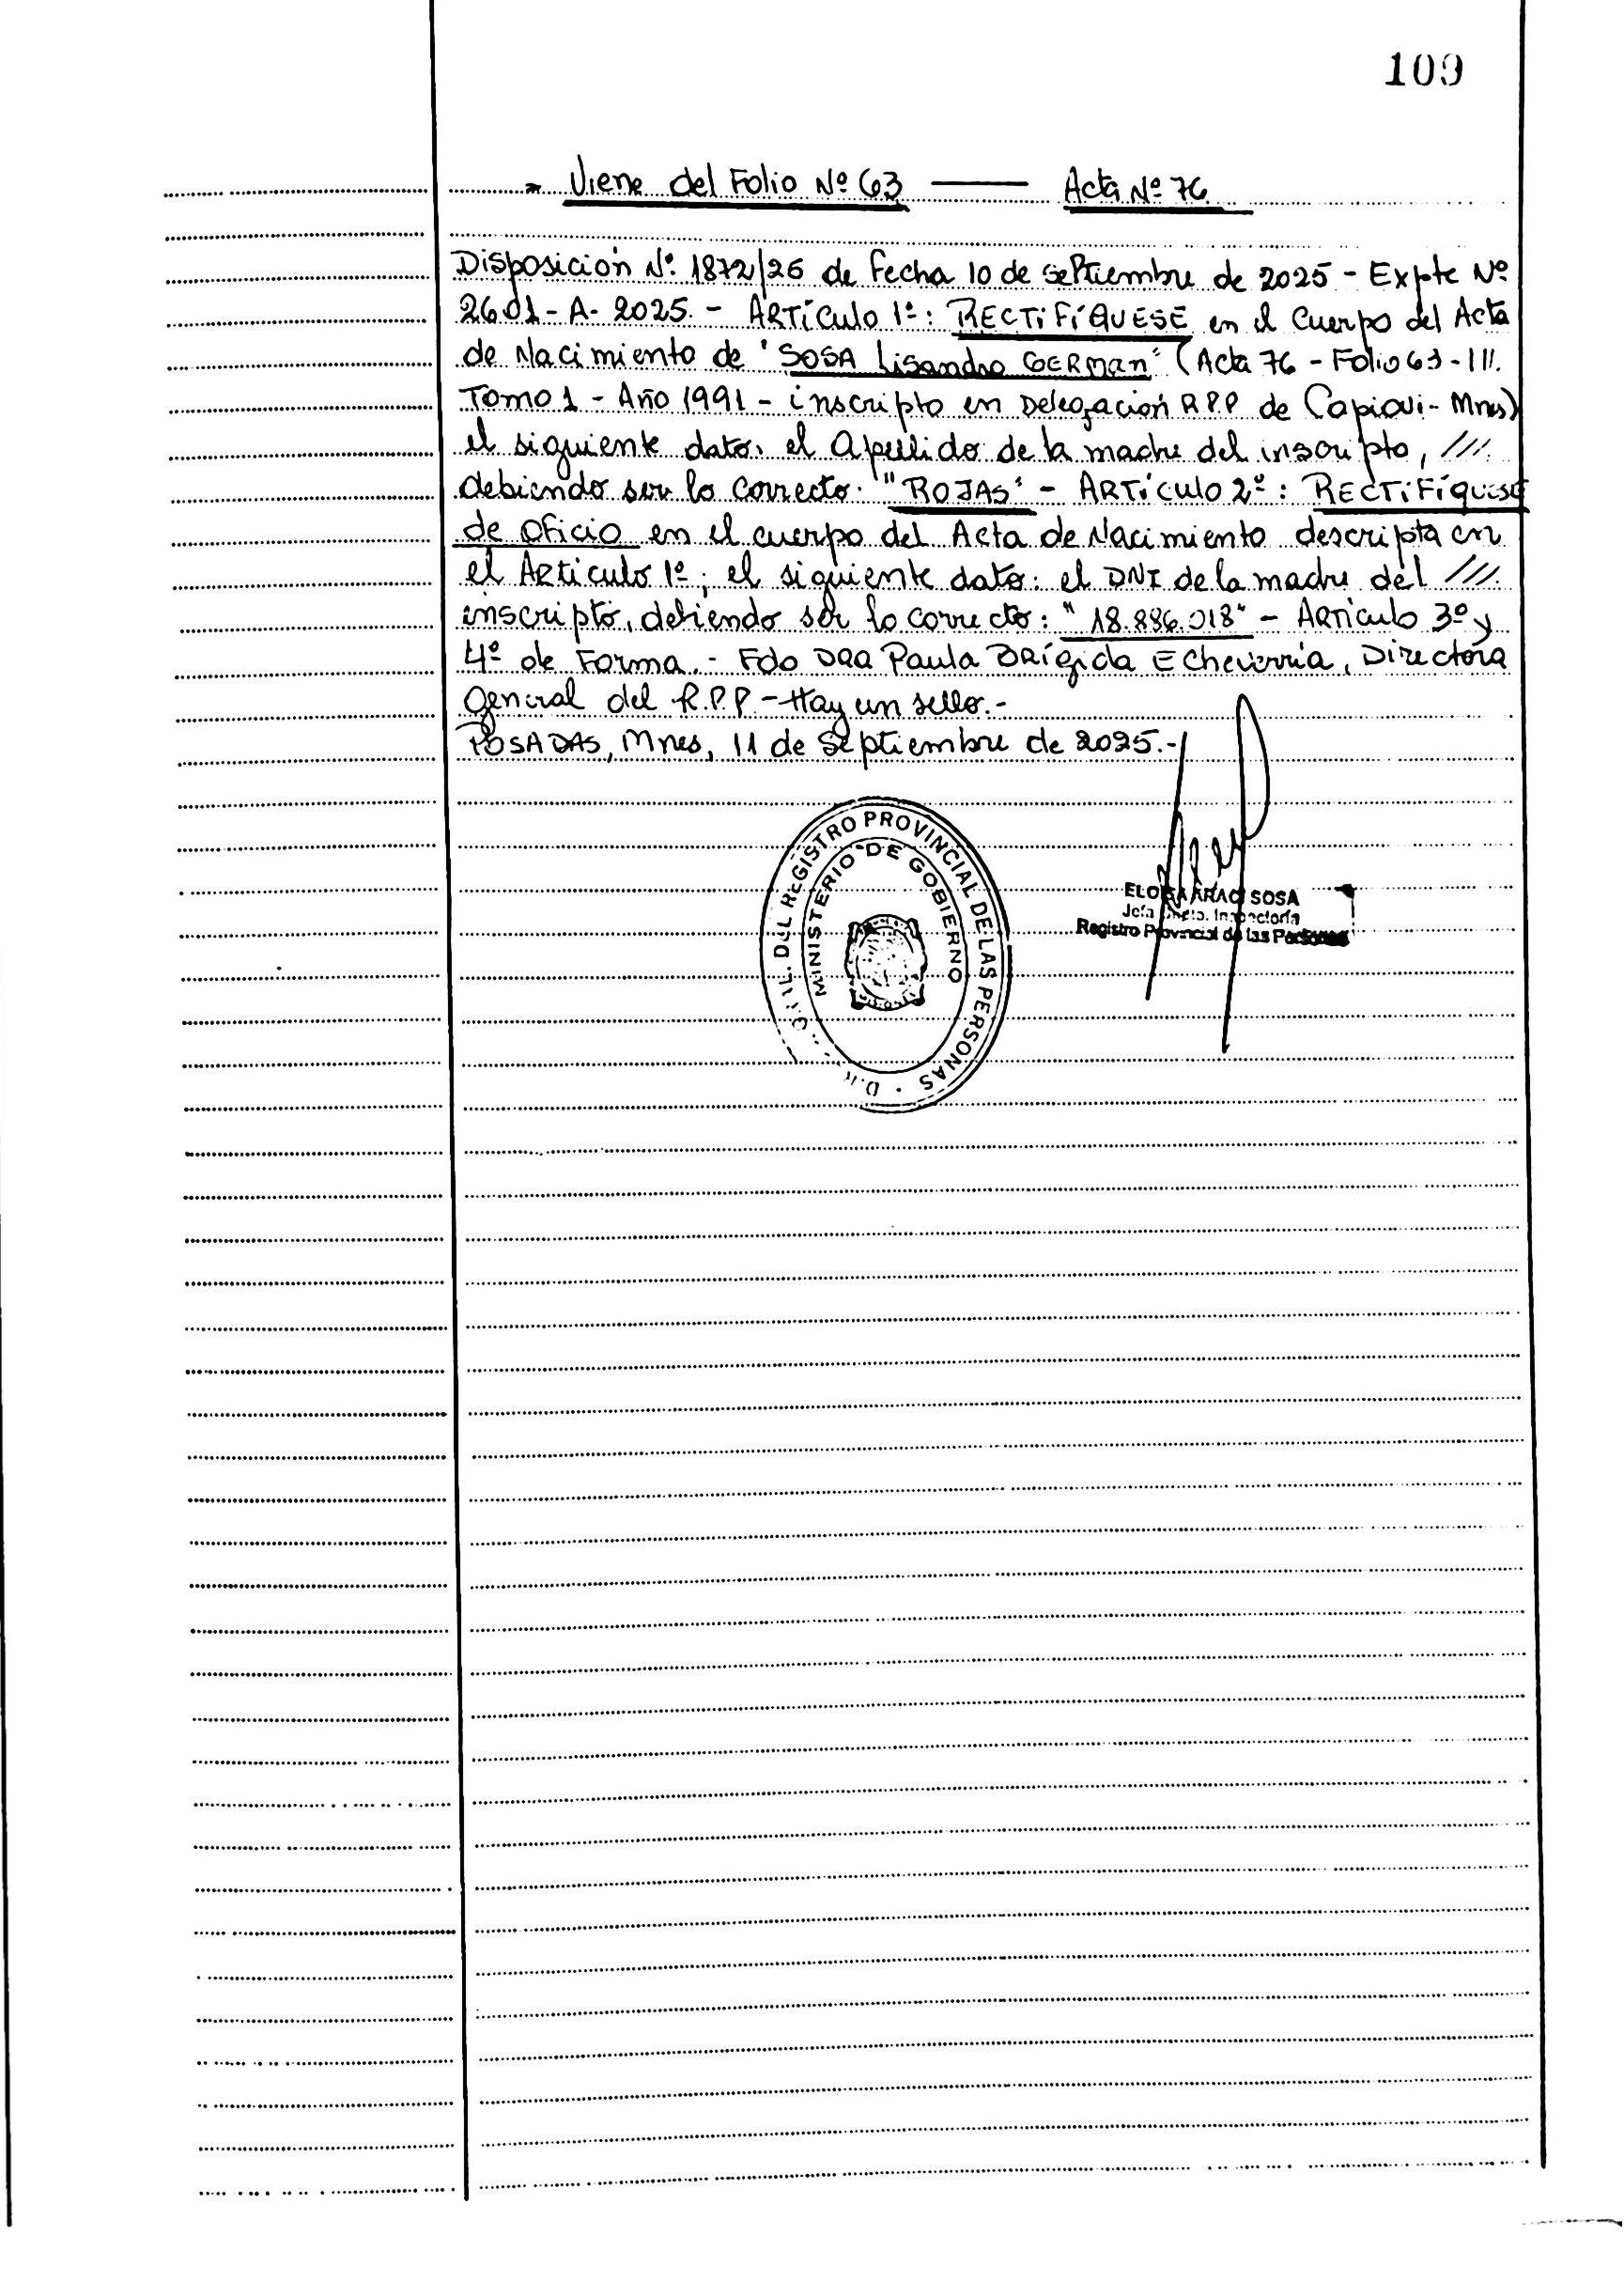 109
- Viene del Folio Nº 63 —— Acta Nº 76.
Disposición Nº. 1872/25 de Fecha 10 de septiembre de 2025 - Expte Nº
2601 - A - 2025. - ARTÍCULO 1º: RECTIFÍQUESE en el cuerpo del Acta
de Nacimiento de "SOSA Lisandro GERMAN" (Acta 76 - Folio 63 - ///.
Tomo 1 - Año 1991 - inscripto en Delegación RPP de Capiovi - Mnes)
el siguiente dato: el Apellido de la madre del inscripto, ///.
debiendo ser lo correcto: "ROJAS" - ARTÍCULO 2º: RECTIFÍQUESE
de oficio en el cuerpo del Acta de Nacimiento descripta en
el Artículo 1º; el siguiente dato: el DNI de la madre del ///.
inscripto, debiendo ser lo correcto: "18.886.018" - Artículo 3º y
4º de Forma. - Fdo DRA Paula Brígida Echeverría, Directora
General del R.P.P - Hay un sello. -
POSADAS, Mnes, 11 de Septiembre de 2025. -
REGISTRO PROVINCIAL DE LAS PERSONAS
MINISTERIO DE GOBIERNO
ELOISA ARACI SOSA
Jefa Dpto. Inspectoría
Registro Provincial de las Personas